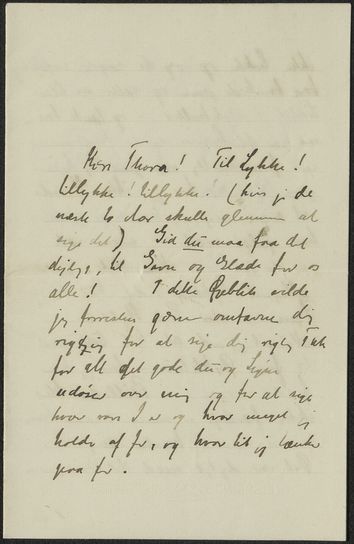 Kære Thora! Til Lykke!
tillykke! tillykke! (hvis jeg de
næste to dar skulle glemme at
sige det) Gid du maa faa det
dejligt, til Gavn og Glæde for os
alle! I dette Øjeblik vilde
jeg forresten gærne omfavne dig
rigtig for at sige dig rigtig Tak
for alt det gode du og
udøser over mig og for at sige
hvor rare I er og hvor meget jeg
holder af jer, og hvor tit jeg tænker
paa jer.